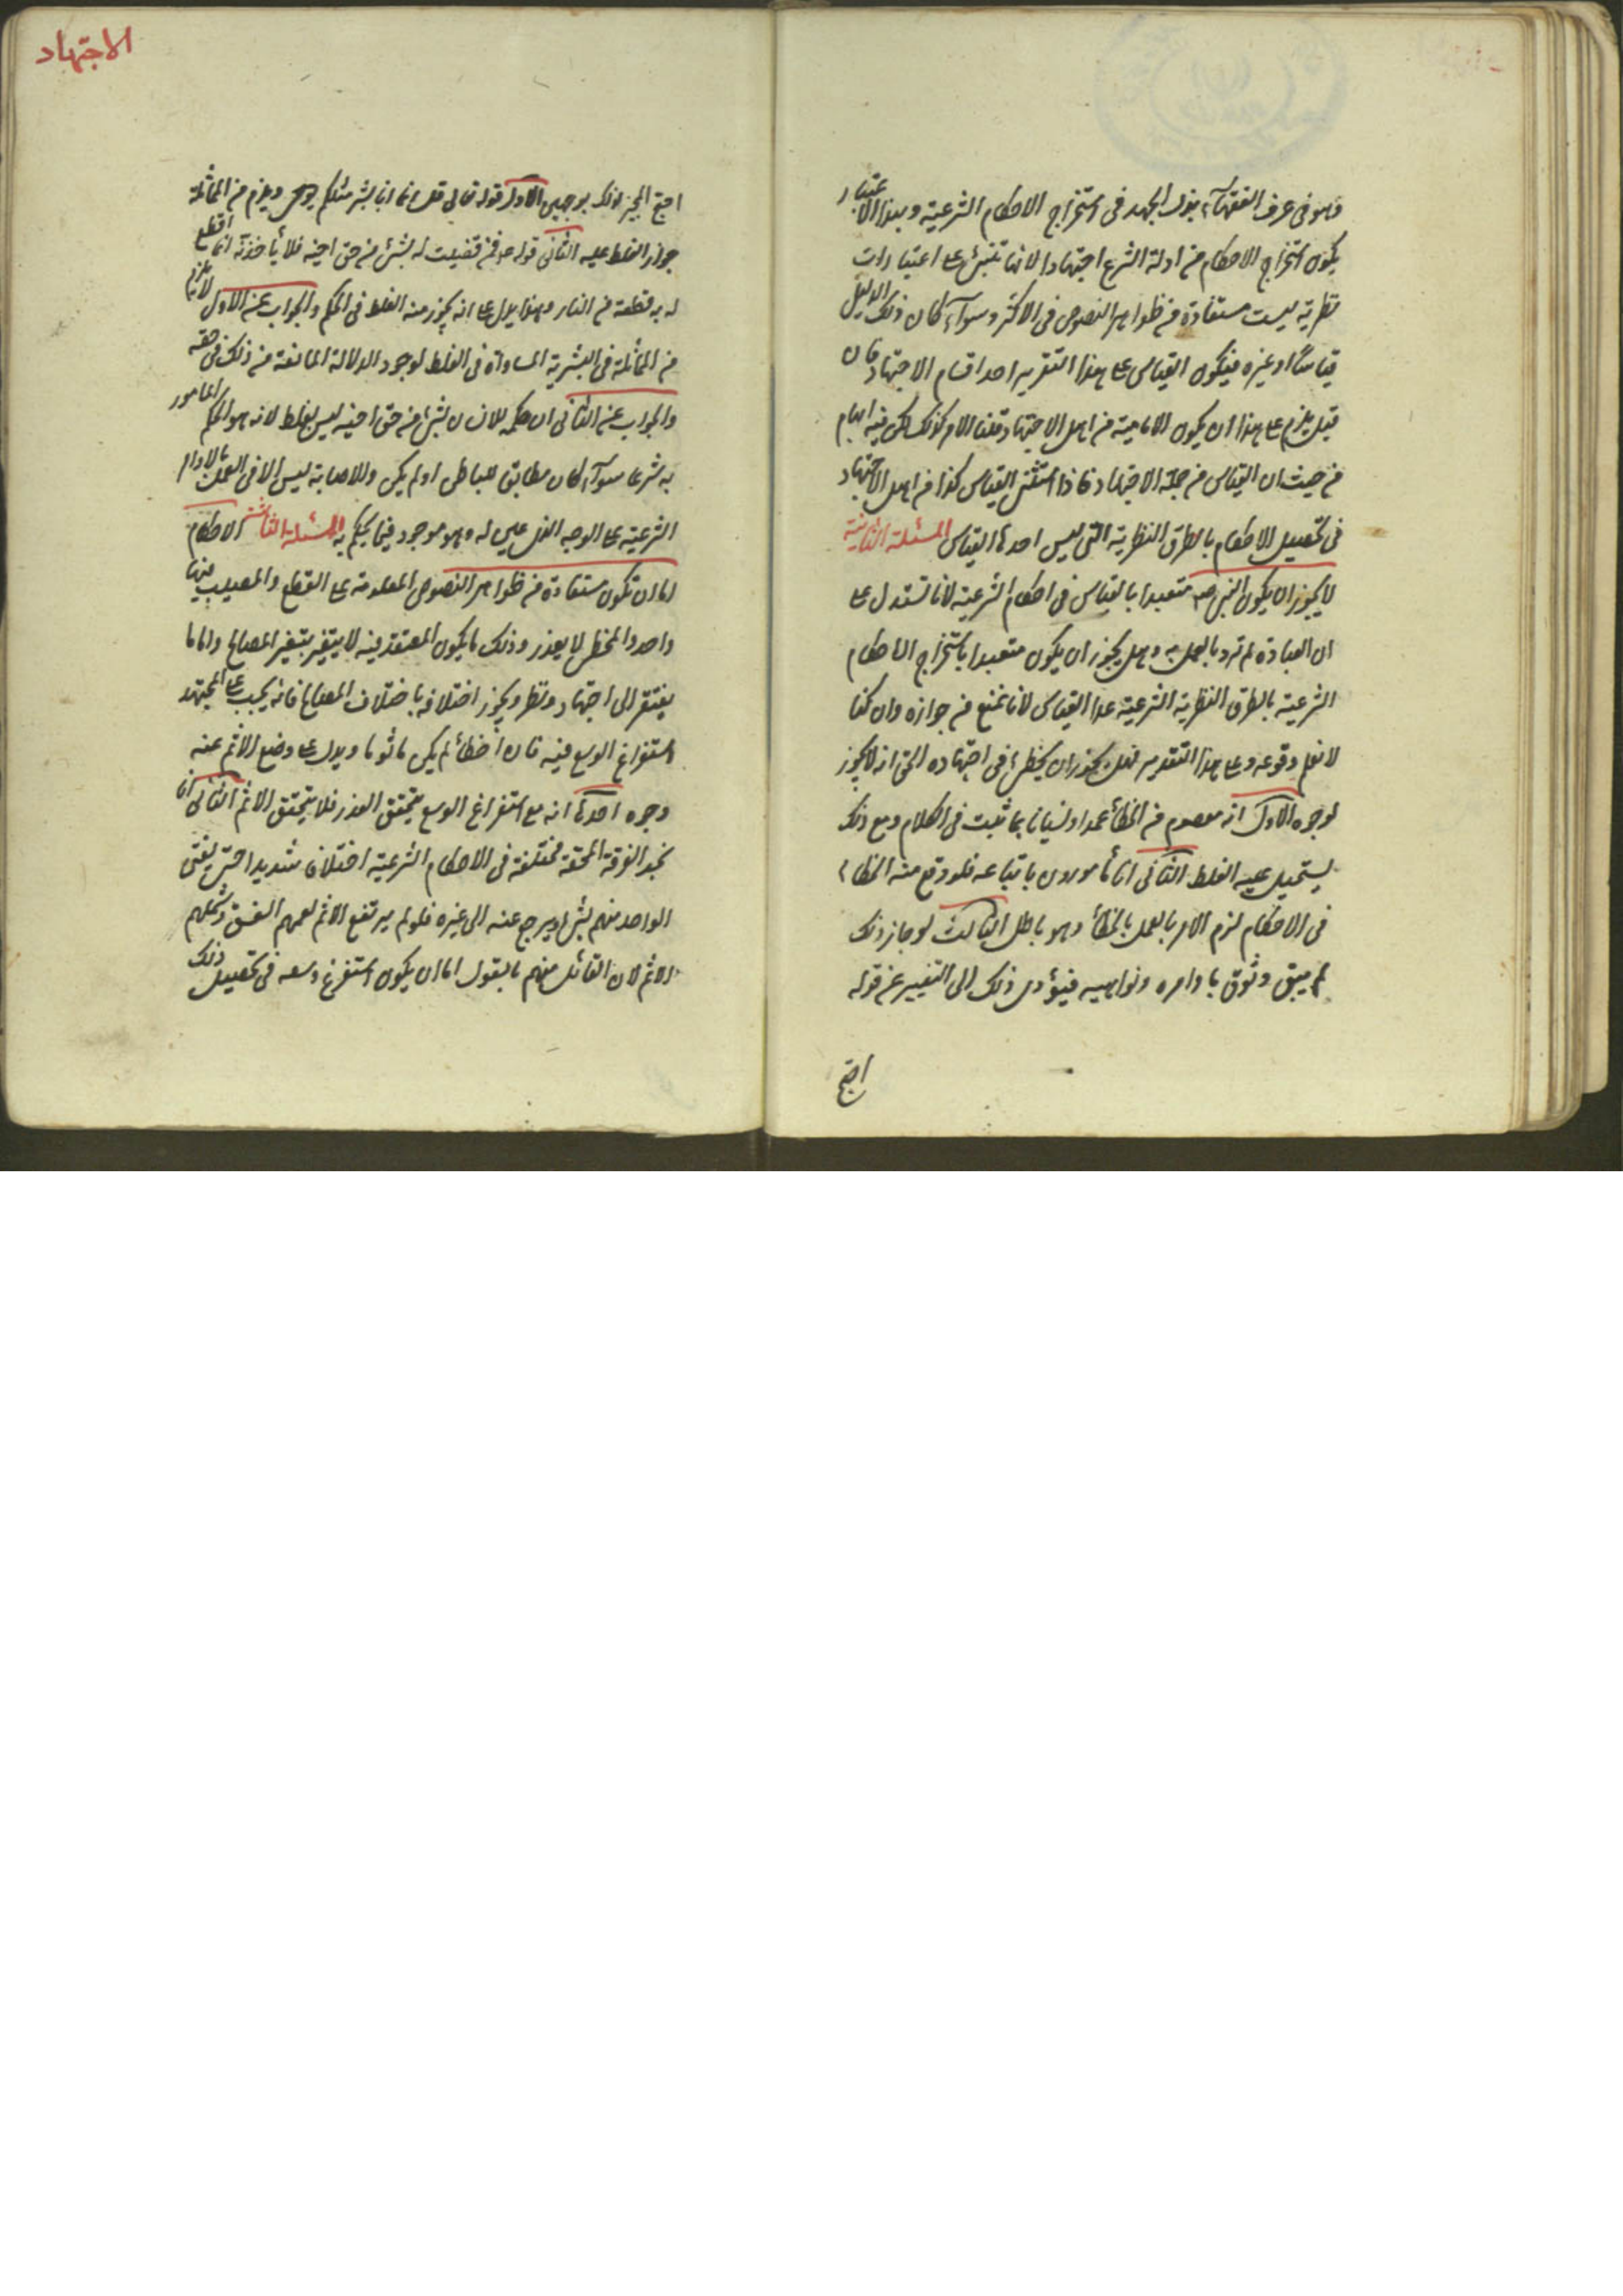 وهو في عرف الفقهآء بذل الجهد في استخراج الاحكام الشرعية وبهذا الاعتبار
يكون استخراج الاحكام من ادلة الشرع اجتهادا لانها تبتنئ على اعتبارات
نظرية ليست مستفادة من ظواهر النصوص في الاكثر وسوآء كان ذلك الدليل
قياسًا او غيره فيكون القياس على هذا التقرير احد اقسام الاجتهاد فان
قيل يلزم على هذا ان يكون الامامية من اهل الاجتهاد قلنا الامر كذلك لكن فيه ايهام
من حيث ان القياس من جملة الاجتهاد فاذا استثنى القياس كنا من اهل الاجتهاد
في تحصيل الاحكام بالطرق النظرية التي ليس احدها القياس المسئلة الثانية
لا يجوز ان يكون النبي صم متعبدا بالقياس في احكام الشرعية لانا نستدل على
ان العبادة لم ترد بالعمل به وهل يجوز ان يكون متعبدا باستخراج الاحكام
الشرعية بالطرق النظرية الشرعية عدا القياس لانا نمنع من جوازه وان كنا
لا نعلم وقوعه وعلى هذا التقدير فهل يجوز ان يخطئ في اجتهاده الحق انه لا يجوز
لوجوه الاول انه معصوم من الخطأ عمدا ونسيانا بما ثبت في الكلام ومع ذلك
يستحيل عليه الغلط الثاني انا مأمورون باتباعه فلو وقع منه الخطاء
في الاحكام لزم الامر بالعمل بالخطأ وهو باطل الثالث لو جاز ذلك
لم يبق وثوق باوامره ونواهيه فيؤدى ذلك الى التنفير عن قوله
احتج
الاجتهاد
احتج المجيز لذلك بوجهين الاول قوله تعالى قل انما انا بشر مثلكم يوحى ويلزم من المماثلة
جواز الغلط عليه الثاني قوله ع فمن قضيت له بشئ من حق اخيه فلا يأخذنه انما اقطع
له به قطعة من النار وهذا يدل على انه يجوز منه الغلط في الحكم والجواب عن الاول لا يلزم
من المماثلة في البشرية المساواة في الغلط لوجود الدلالة المانعة من ذلك في حقه
والجواب عن الثاني ان حكمه لانسان بشئ من حق اخيه ليس بغلط لانه هو الحكم المامور
به شرعا سوآء كان مطابق للباطن او لم يكن وللاصابة ليس الا في العمل بالاوامر
الشرعية على الوجه الذي عين له وهو موجود فيما يحكم به المسئلة الثالثة الاحكام
اما ان تكون مستفادة من ظواهر النصوص المعلومة على القطع والمصيب فيها
واحد والمخطئ لا يعذر وذلك ما يكون المعتقد فيه لا يتغير بتغير المصالح واما ما
يفتقر الى اجتهاد ونظر ويجوز اختلافه باختلاف المصالح فانه يجب على المجتهد
استفراغ الوسع فيه فان اخطأ لم يكن مأثوما ويدل على وضع الاثم عنه
وجوه احدها انه مع استفراغ الوسع يتحقق العذر فلا يتحقق الاثم الثاني انا
نجد الفرقة المحقة مختلفة في الاحكام الشرعية اختلافا شديدا حتى يفتي
الواحد منهم بشئ ويرجع عنه الى غيره فلو لم يرتفع الاثم لعمهم الفسق وشملهم
الاثم لان القائل منهم بالقول اما ان يكون استفرغ وسعه في تحصيل ذلك